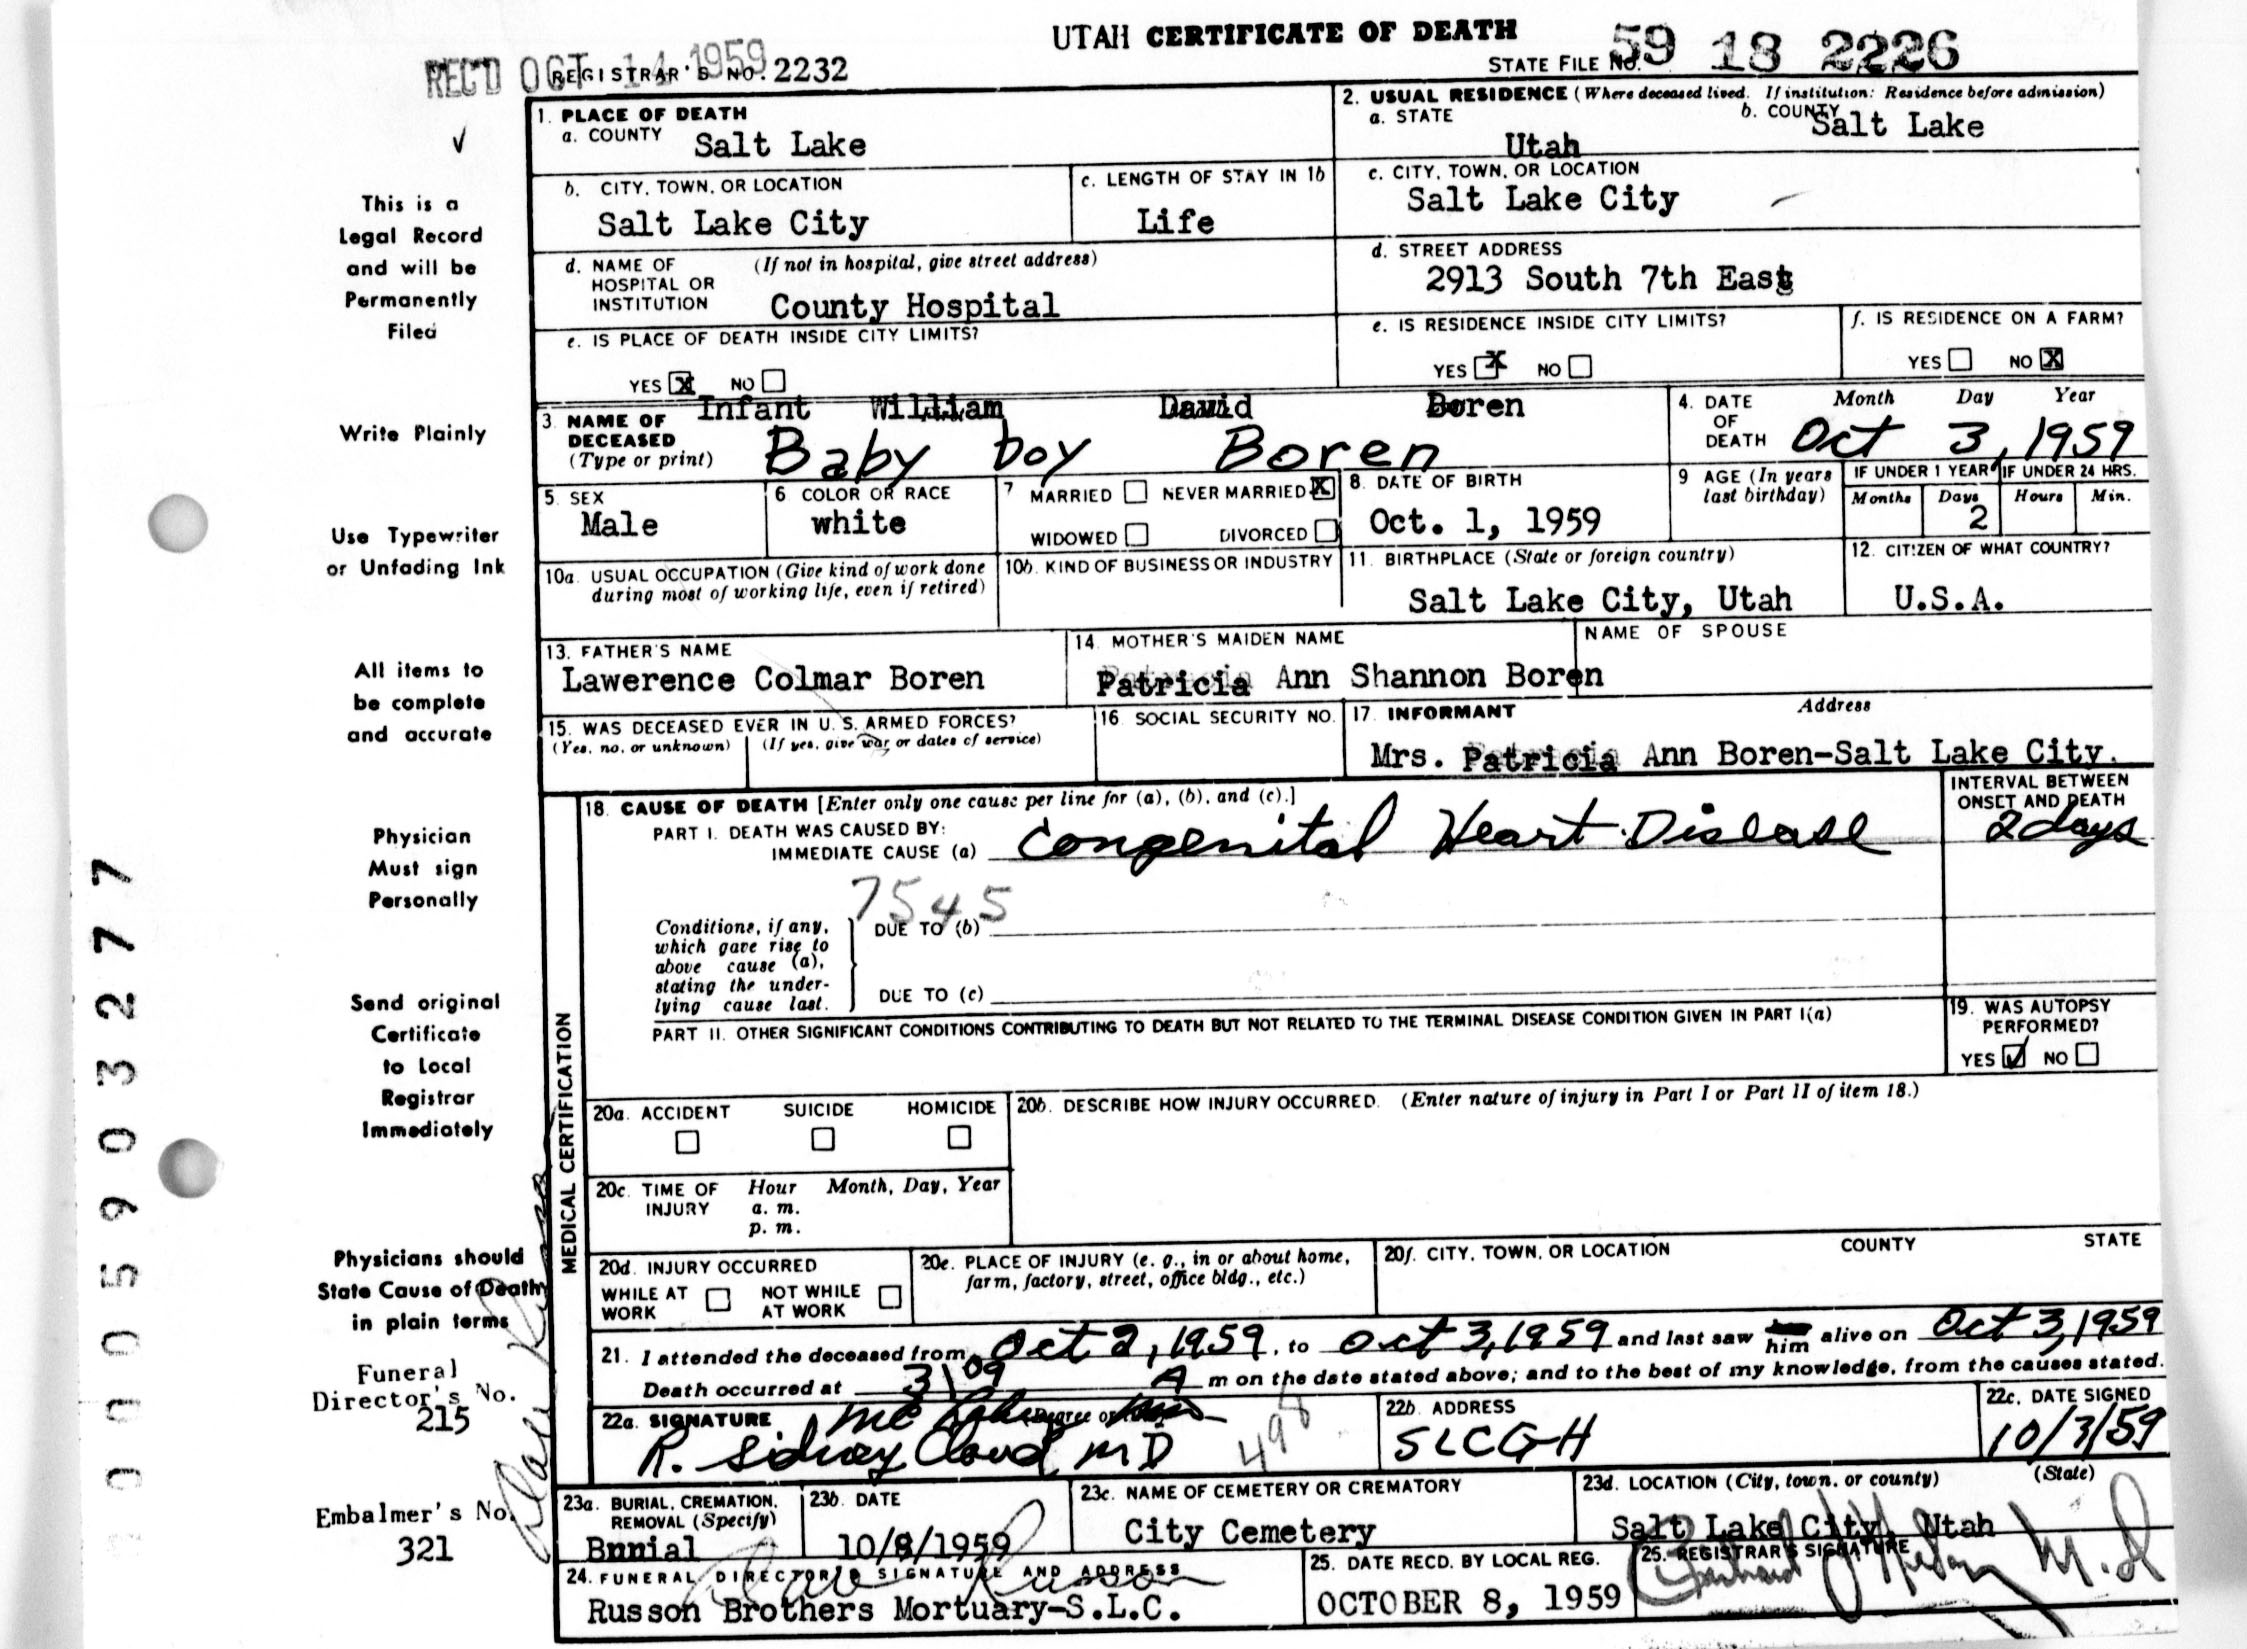 UTAH CERTIFICATE OF DEATH
REC'D OCT 14 1959
REGISTRAR'S NO. 2232
STATE FILE NO. 59 18 2226
1. PLACE OF DEATH
a. COUNTY Salt Lake
2. USUAL RESIDENCE (Where deceased lived. If institution: Residence before admission)
a. STATE Utah
b. COUNTY Salt Lake
b. CITY, TOWN, OR LOCATION
Salt Lake City
c. LENGTH OF STAY IN 1b
Life
c. CITY, TOWN, OR LOCATION
Salt Lake City
d. NAME OF HOSPITAL OR INSTITUTION (If not in hospital, give street address)
County Hospital
d. STREET ADDRESS
2913 South 7th East
e. IS PLACE OF DEATH INSIDE CITY LIMITS?
YES X NO
e. IS RESIDENCE INSIDE CITY LIMITS?
YES X NO
f. IS RESIDENCE ON A FARM?
YES NO X
3. NAME OF DECEASED (Type or print)
Infant William David Boren
Baby boy Boren
4. DATE OF DEATH Month Day Year
Oct 3, 1959
5. SEX
Male
6 COLOR OR RACE
white
7 MARRIED NEVER MARRIED X
WIDOWED DIVORCED
8. DATE OF BIRTH
Oct. 1, 1959
9 AGE (In years last birthday)
IF UNDER 1 YEAR IF UNDER 24 HRS.
Months Days Hours Min.
2
10a. USUAL OCCUPATION (Give kind of work done during most of working life, even if retired)
10b. KIND OF BUSINESS OR INDUSTRY
11. BIRTHPLACE (State or foreign country)
Salt Lake City, Utah
12. CITIZEN OF WHAT COUNTRY?
U.S.A.
13. FATHER'S NAME
Lawerence Colmar Boren
14. MOTHER'S MAIDEN NAME
Patricia Ann Shannon Boren
NAME OF SPOUSE
15. WAS DECEASED EVER IN U. S. ARMED FORCES?
(Yes, no, or unknown) (If yes, give war or dates of service)
16. SOCIAL SECURITY NO.
17. INFORMANT Address
Mrs. Patricia Ann Boren-Salt Lake City.
18. CAUSE OF DEATH [Enter only one cause per line for (a), (b), and (c).]
INTERVAL BETWEEN ONSET AND DEATH
PART I. DEATH WAS CAUSED BY:
IMMEDIATE CAUSE (a) Congenital Heart Disease
2 days
7545
Conditions, if any, which gave rise to above cause (a), stating the underlying cause last.
DUE TO (b)
DUE TO (c)
PART II. OTHER SIGNIFICANT CONDITIONS CONTRIBUTING TO DEATH BUT NOT RELATED TO THE TERMINAL DISEASE CONDITION GIVEN IN PART I(a)
19. WAS AUTOPSY PERFORMED?
YES ✓ NO
MEDICAL CERTIFICATION
20a. ACCIDENT SUICIDE HOMICIDE
20b. DESCRIBE HOW INJURY OCCURRED. (Enter nature of injury in Part I or Part II of item 18.)
20c. TIME OF INJURY Hour Month, Day, Year
a. m.
p. m.
20d. INJURY OCCURRED
WHILE AT WORK NOT WHILE AT WORK
20e. PLACE OF INJURY (e. g., in or about home, farm, factory, street, office bldg., etc.)
20f. CITY, TOWN, OR LOCATION COUNTY STATE
21. I attended the deceased from Oct 2, 1959, to Oct 3, 1959 and last saw him alive on Oct 3, 1959
Death occurred at 3:09 A m on the date stated above; and to the best of my knowledge, from the causes stated.
22a. SIGNATURE
R. Sidney Cloud, MD
498
22b. ADDRESS
SLCGH
22c. DATE SIGNED
10/3/59
23a. BURIAL, CREMATION, REMOVAL (Specify)
23b. DATE
10/8/1959
23c. NAME OF CEMETERY OR CREMATORY
City Cemetery
23d. LOCATION (City, town, or county) (State)
Salt Lake City, Utah
24. FUNERAL DIRECTOR'S SIGNATURE AND ADDRESS
Russon Brothers Mortuary-S.L.C.
25. DATE RECD. BY LOCAL REG.
OCTOBER 8, 1959
25. REGISTRAR'S SIGNATURE
This is a
Legal Record
and will be
Permanently
Filed
Write Plainly
Use Typewriter
or Unfading Ink
All items to
be complete
and accurate
Physician
Must sign
Personally
Send original
Certificate
to Local
Registrar
Immediately
Physicians should
State Cause of Death
in plain terms
Funeral
Director's No.
215
Embalmer's No.
321